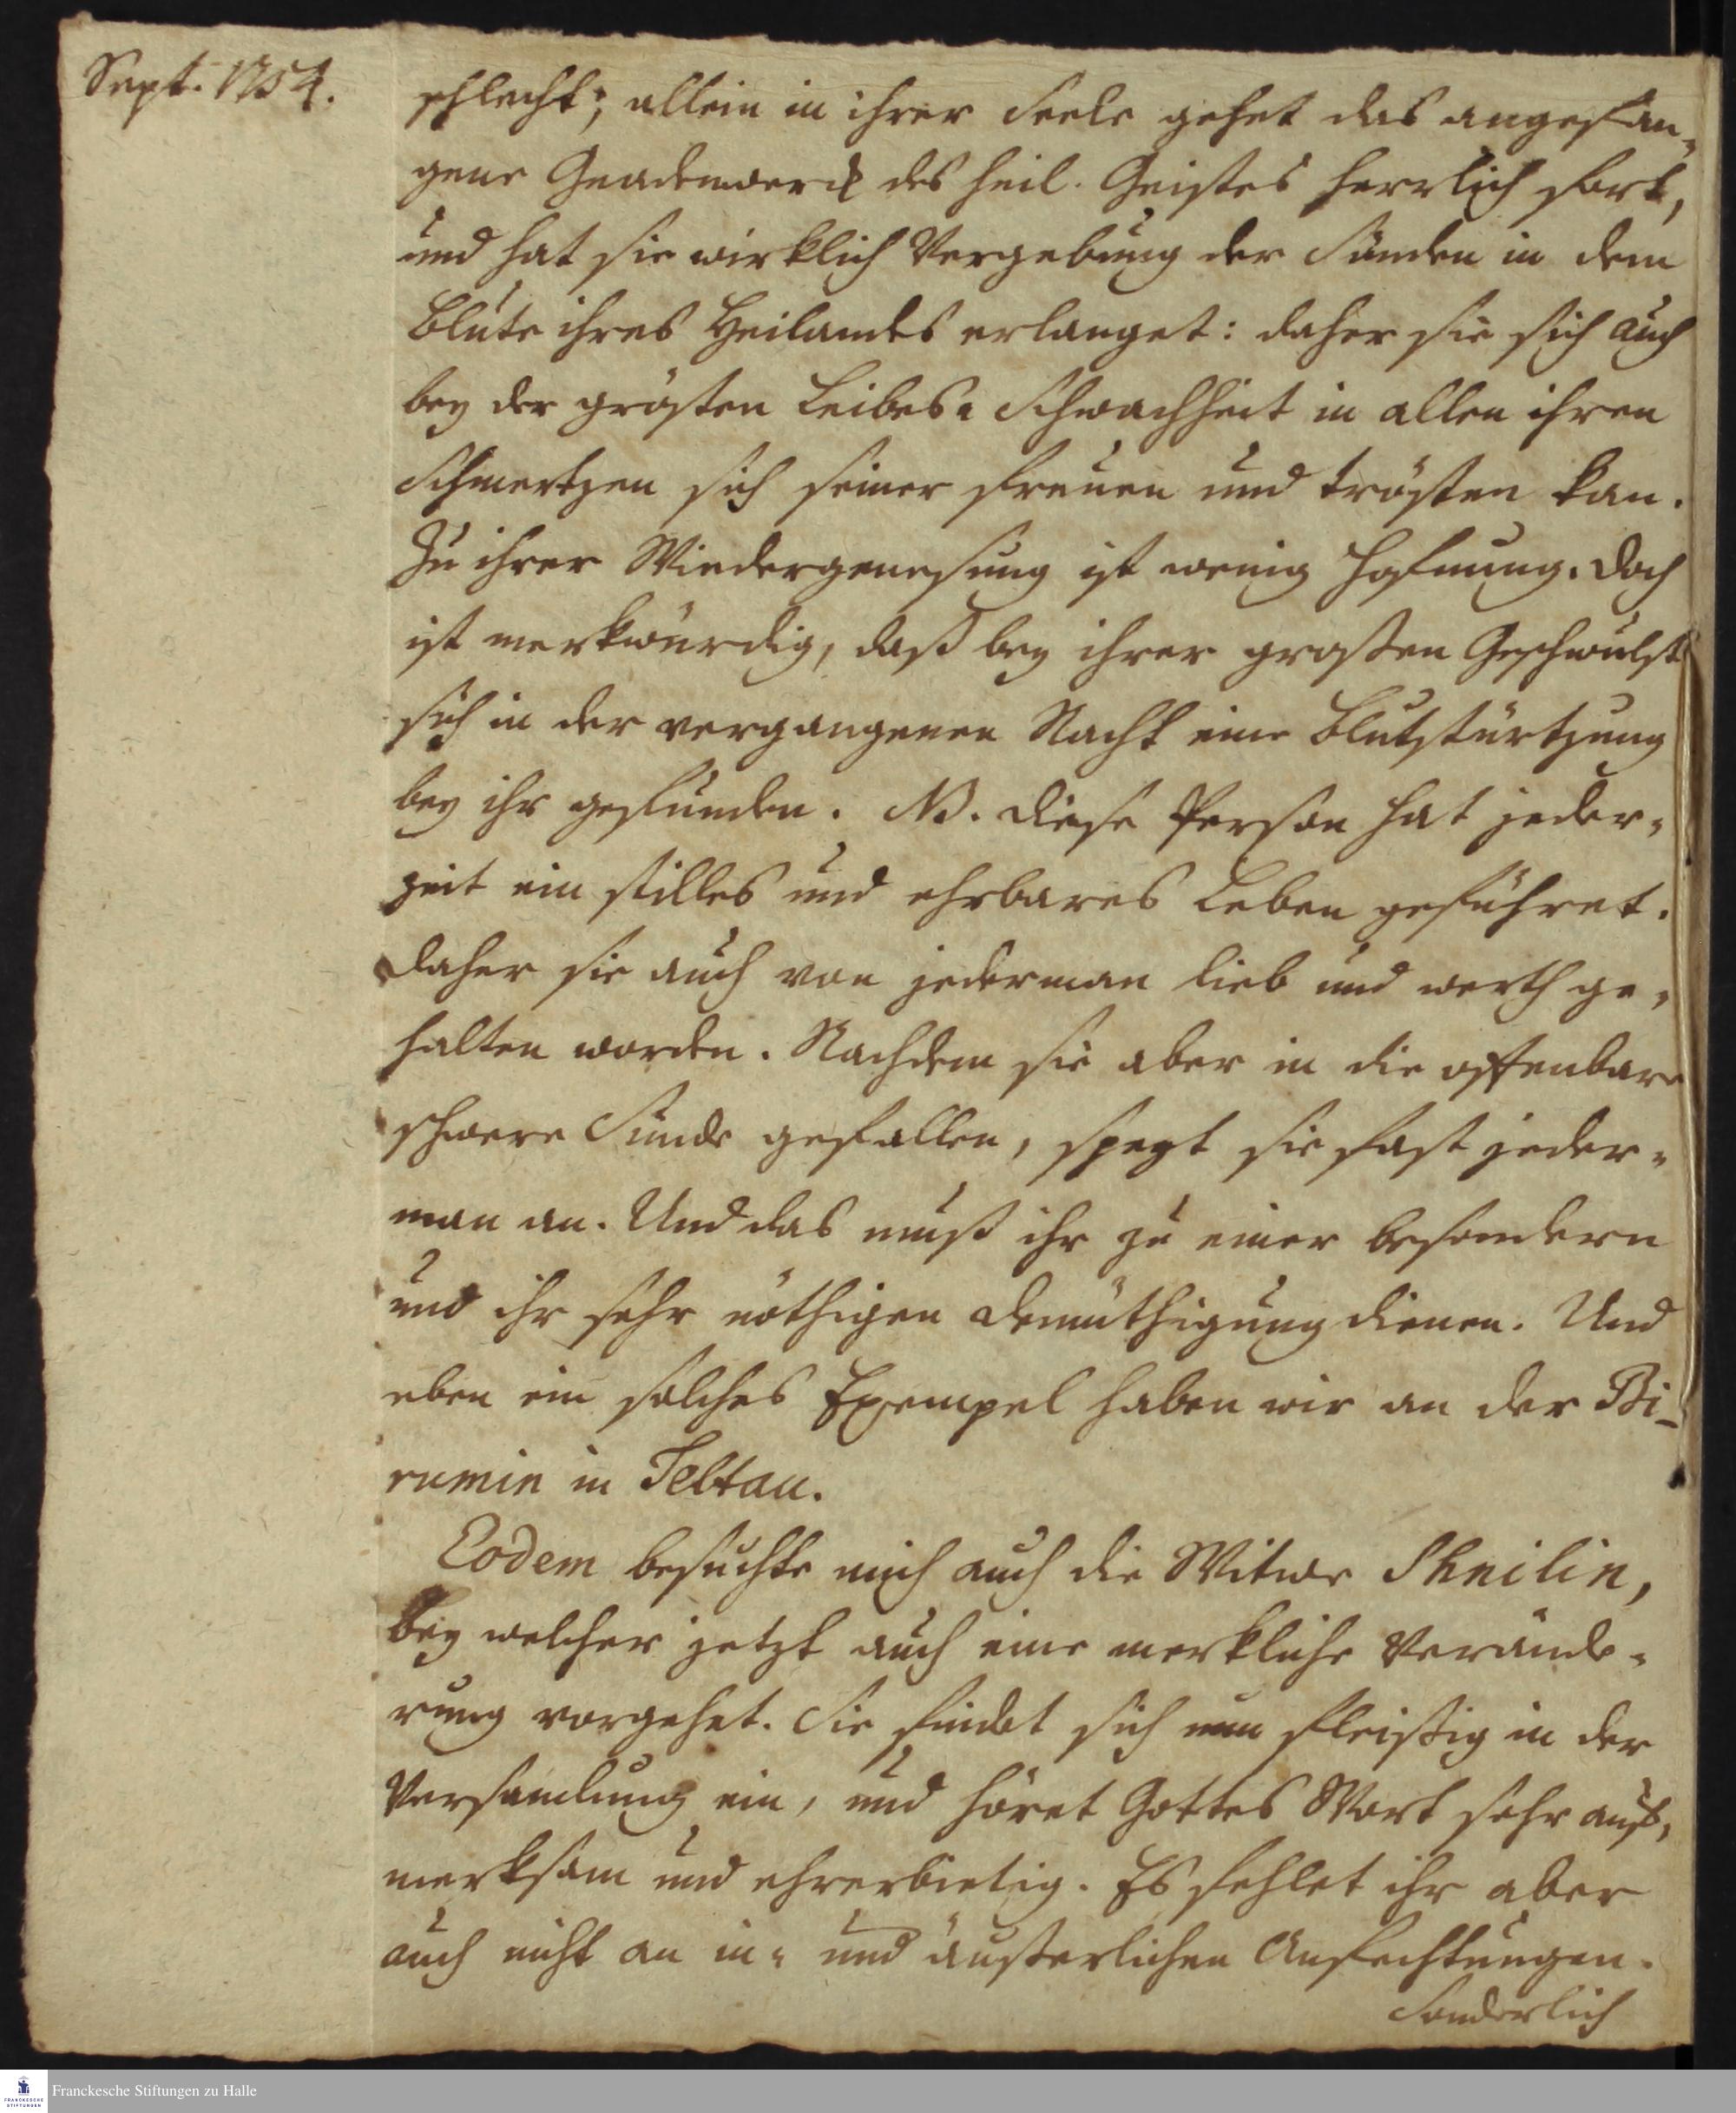 Sept. 1754.
schlecht; allein in ihrer Seele gehet das angefan-
gene Gnadenwerck des heil. Geistes herrlich fort,
und hat sie wirklich Vergebung der Sünden in dem
Blute ihres Heilandes erlanget: daher sie sich auch
bey der grösten Leibes-Schwachheit in allen ihren
Schmertzen sich seiner freuen und trösten kan.
Zu ihrer Wiedergenesung ist wenig Hofnung. Doch
ist merkwürdig, daß bey ihrer großen Geschwulst
sich in der vergangenen Nacht eine Blutstürtzung
bey ihr gefunden. NB. Diese Person hat jeder-
zeit ein stilles und ehrbares Leben geführet.
Daher sie auch von jederman lieb und werth ge-
halten worden. Nachdem sie aber in die offenbare
schwere Sünde gefallen, speyt sie fast jeder-
man an. Und das muß ihr zu einer besondern
und ihr sehr nöthigen Demüthigung dienen. Und
eben ein solches Exempel haben wir an der Bi-
rumin in Teltau.
Eodem besuchte mich auch die Witwe Theilin,
bey welcher jetzt auch eine merkliche Verände-
rung vorgehet. Sie findet sich nun fleißig in der
Versamlung ein, und höret Gottes Wort sehr auf-
merksam und ehrerbietig. Es fehlet ihr aber
auch nicht an in- und äußerlichen Anfechtungen.
Sonderlich
Franckesche Stiftungen zu Halle
FRANCKESCHE
STIFTUNGEN